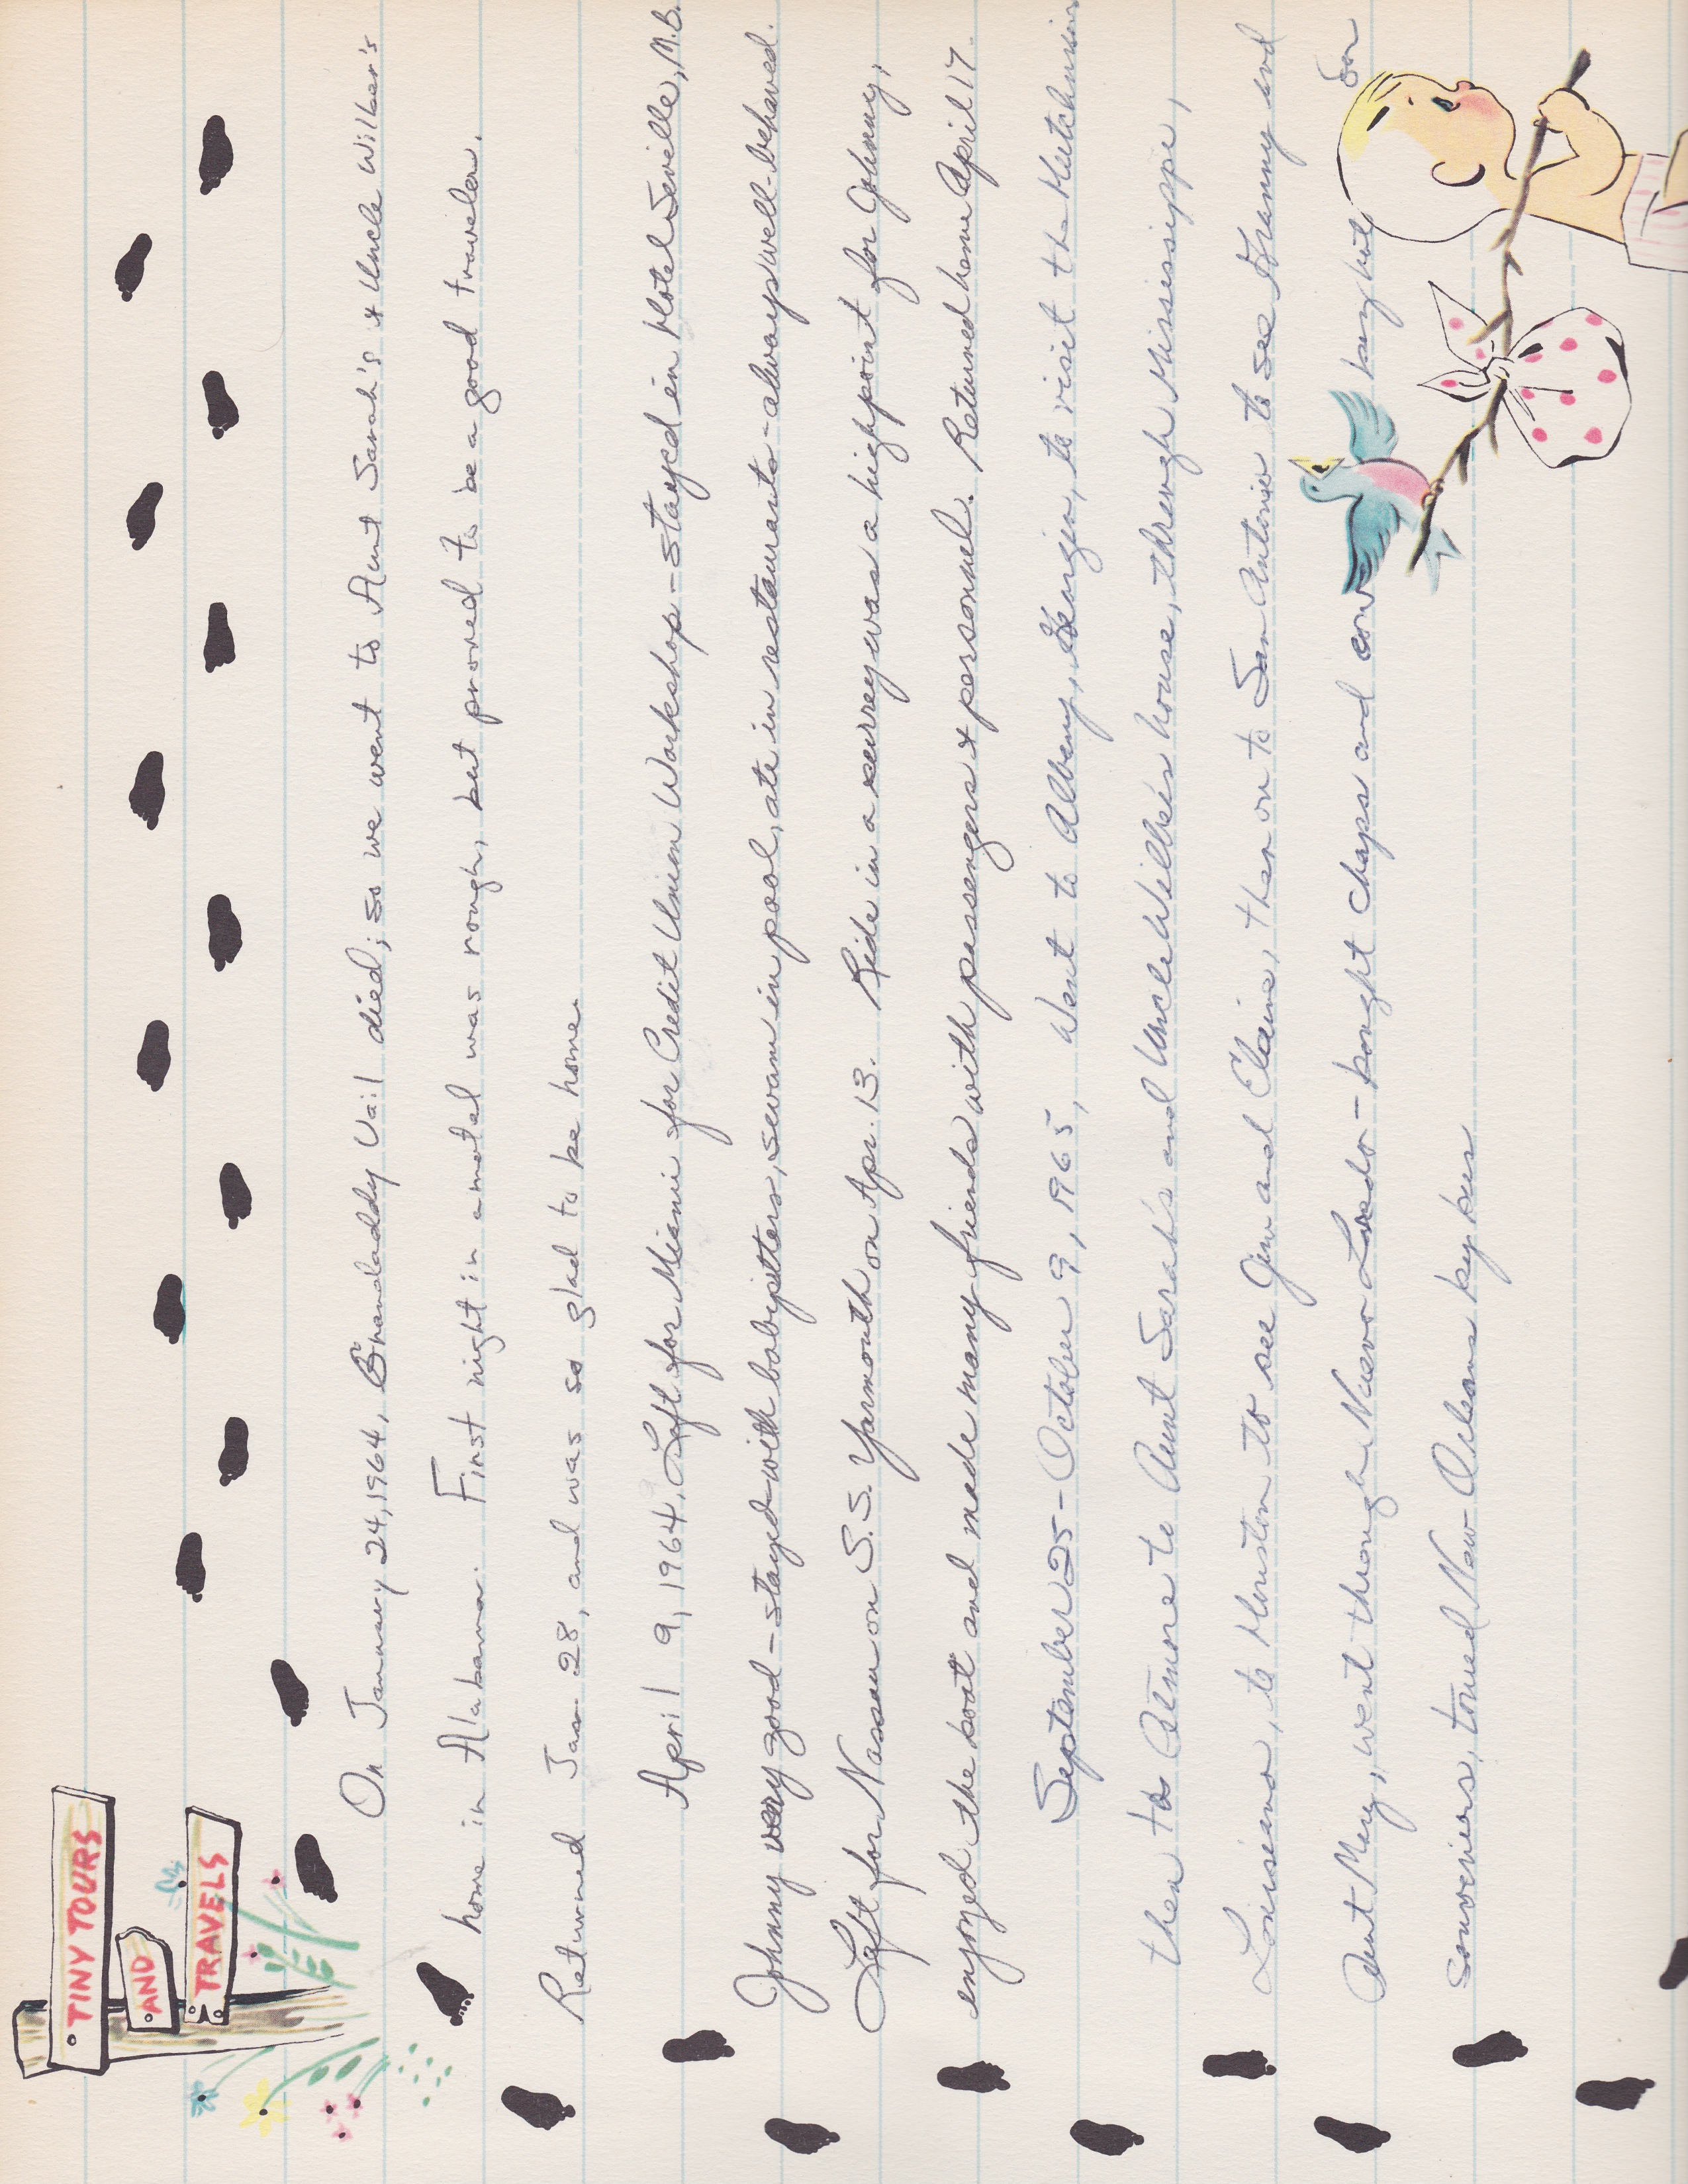 TINY TOURS
AND
TRAVELS
On January 24, 1964, Grandaddy Vail died; so we went to Aunt Sarah's & Uncle Wilber's
home in Alabama. First night in a motel was rough, but proved to be a good traveler.
Returned Jan 28, and was so glad to be home.
April 9, 1964. Left for Miami for Credit Union Workshop - stayed in Hotel Seville, M.B.
Johnny very good - stayed with babysitters, swam in pool, ate in restaurants - always well-behaved.
Left for Nassau on S.S. Yarmouth on Apr. 13. Ride in a surrey was a highpoint for Johnny,
enjoyed the boat and made many friends with passengers & personnel. Returned home April 17.
September 25 - October 9, 1965, Went to Albany, Georgia, to visit the Hutchinsons
then to Atmore to Aunt Sarah's and Uncle Wilber's house, through Mississippi,
Louisiana, to Houston to see Jim and Elaine, then on to San Antonio to see Granny and
Aunt Mary, went through Nuevo Laredo - bought chaps and cow boy hat Son
souveniers, toured New Orleans